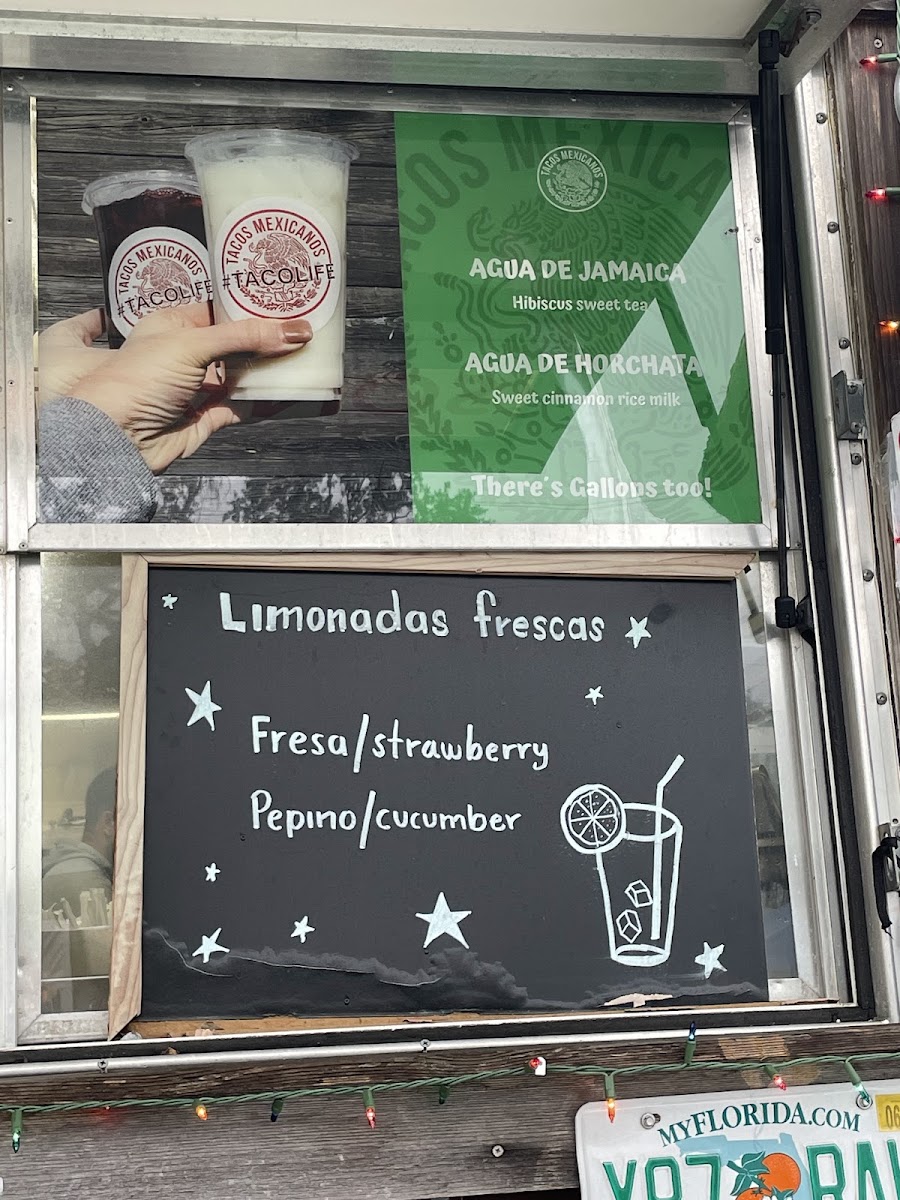 TACOS MEXICANOS
#TACOLIFE
TACOS MEXICANOS
#TACOLIFE
TACOS MEXICANOS
AGUA DE JAMAICA
Hibiscus sweet tea
AGUA DE HORCHATA
Sweet cinnamon rice milk
There's Gallons too!
Limonadas frescas
Fresa/strawberry
Pepino/cucumber
MYFLORIDA.COM
06